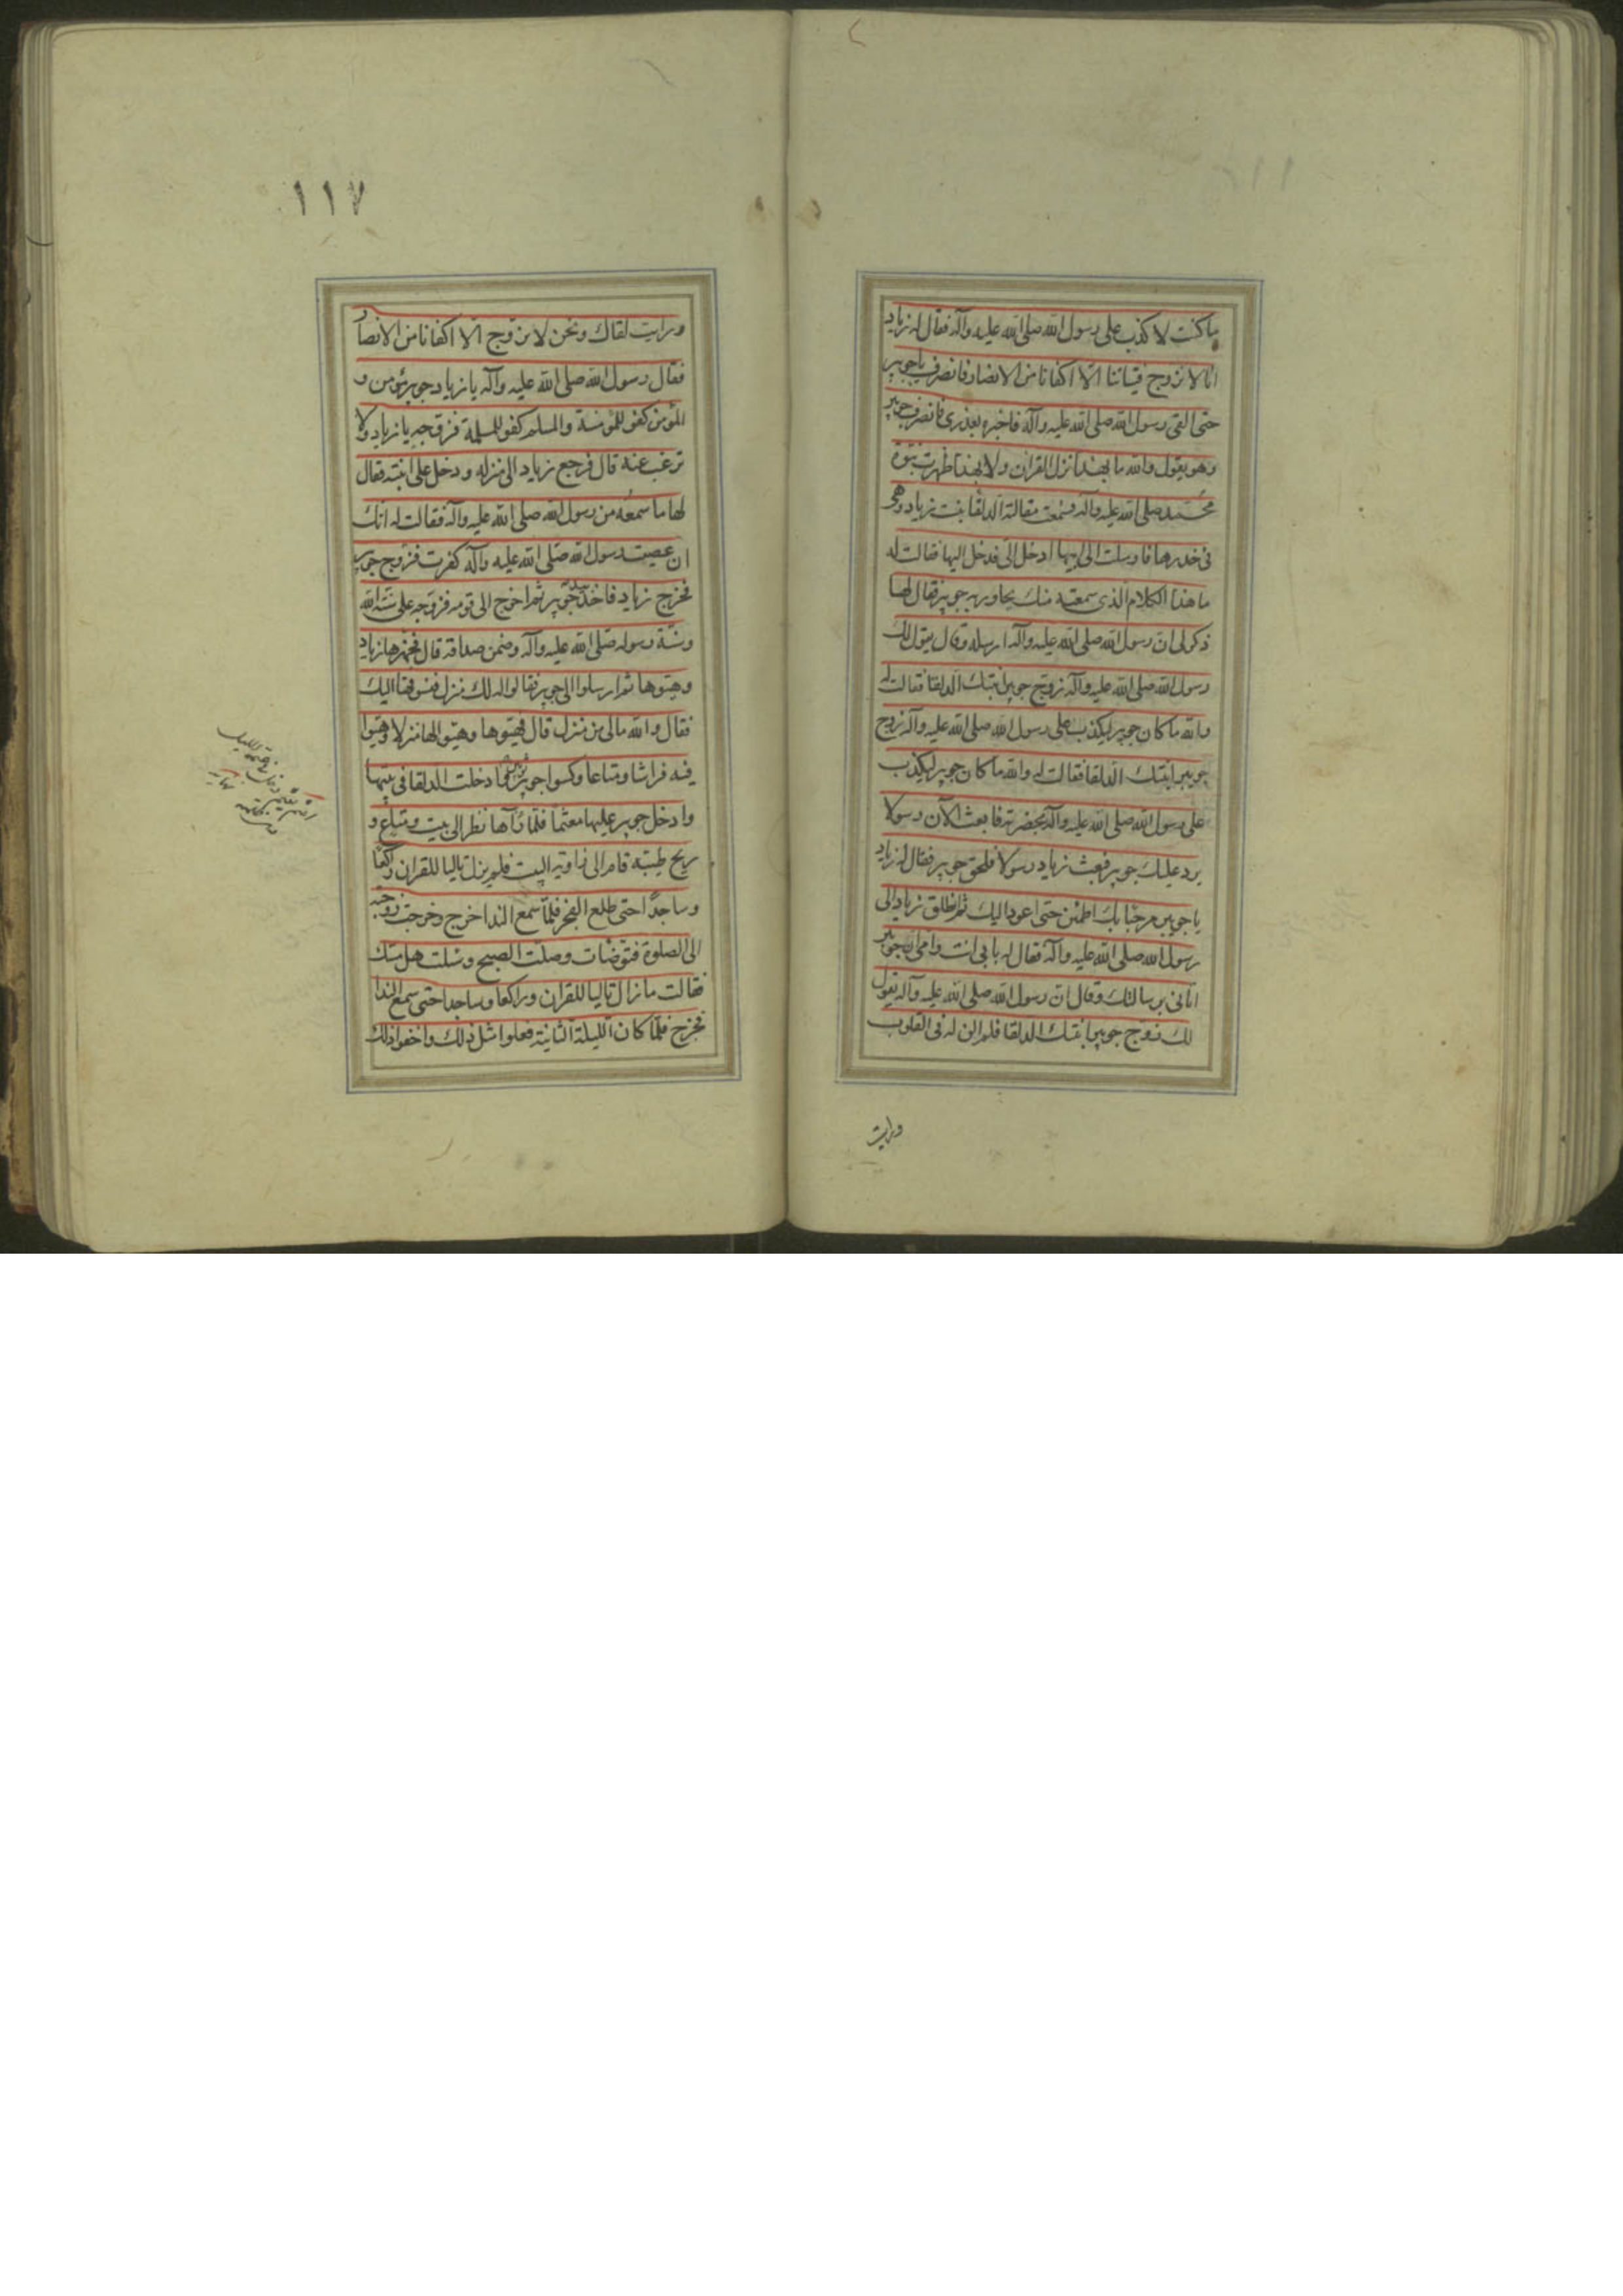 ما كنت لاكذب على رسول الله صلى الله عليه وآله فقال له زياد
انا لا نزوج فتياتنا الّا اكفانا من الانصار فانصرف يا جويبر
حتى القى رسول الله صلى الله عليه وآله فاخبره بعذرى فانصرف جويبر
وهو يقول والله ما بهذا نزل القران ولا بهذا ظهرت نبوّة
محمّد صلى الله عليه وآله فسمعت مقالته الدلفا بنت زياد وهى
فى خدرها فارسلت الى ابيها ادخل الىّ فدخل اليها فقالت له
ما هذا الكلام الّذى سمعته منك يحاور به جويبر فقال لها
ذكر لى انّ رسول الله صلى الله عليه وآله ارسله وقال يقول لك
رسول الله صلى الله عليه وآله زوّج جويبرا ابنتك الدلفا فقالت له
والله ما كان جويبر ليكذب على رسول الله صلى الله عليه وآله زوج
جويبر ابنتك الدلفا فقالت له والله ما كان جويبر ليكذب
على رسول الله صلى الله عليه وآله بحضرته فابعث الآن رسولا
يرد عليك جويبر فبعث زياد رسولا فلحق جويبر فقال له زياد
يا جويبر مرحبا بك اطمئن حتى اعود اليك ثم انطلق زياد الى
رسول الله صلى الله عليه وآله فقال له بابى انت وامّى ان جويبر
اتانى برسالتك وقال انّ رسول الله صلى الله عليه وآله يقول
لك زوّج جويبرا ابنتك الدلفا فلم الن له فى القلوب
ورايت
١١٧
ورايت لقاك ونحن لا نزوّج الّا اكفانا من الانصار
فقال رسول الله صلى الله عليه وآله يا زياد جويبر مؤمن و
المؤمن كفو للمؤمنة والمسلم كفو للمسلمة فزوّجه يا زياد ولا
ترغب عنه قال فرجع زياد الى منزله ودخل على ابنته فقال
لها ما سمعه من رسول الله صلى الله عليه وآله فقالت له انّك
ان عصيت رسول الله صلى الله عليه وآله كفرت فزوّج جويبر
فخرج زياد فاخذ بيد جويبر ثم اخرج الى قومه فزوّجه على سنّة الله
وسنّة رسوله صلّى الله عليه وآله وضمن صداقه قال فجهزها زياد
وهيّوها ثم ارسلوا الى جويبر فقالوا له لك منزل فنسوقها اليك
فقال والله مالى من منزل قال فهيّوها وهيّوا لها منزلا وهيّوا
فيه فراشا ومتاعا وكسوا جويبر ادخلت الدلفا فى بيتها
وادخل جويبر عليها معتمّا فلمّا رآها نظر الى بيت ومتاع و
ريح طيّبة قام الى زاوية البيت فلم يزل تاليا للقران راكعا
وساجدًا حتى طلع الفجر فلمّا سمع الندا خرج وخرجت زوجته
الى الصلوة فتوضّات وصلّت الصبح وسئلت هل مسّك
فقالت ما زال تاليا للقران وراكعا وساجدا حتى سمع الندا
فخرج فلمّا كان الليلة الثانية فعلوا مثل ذلك واخفوا ذلك